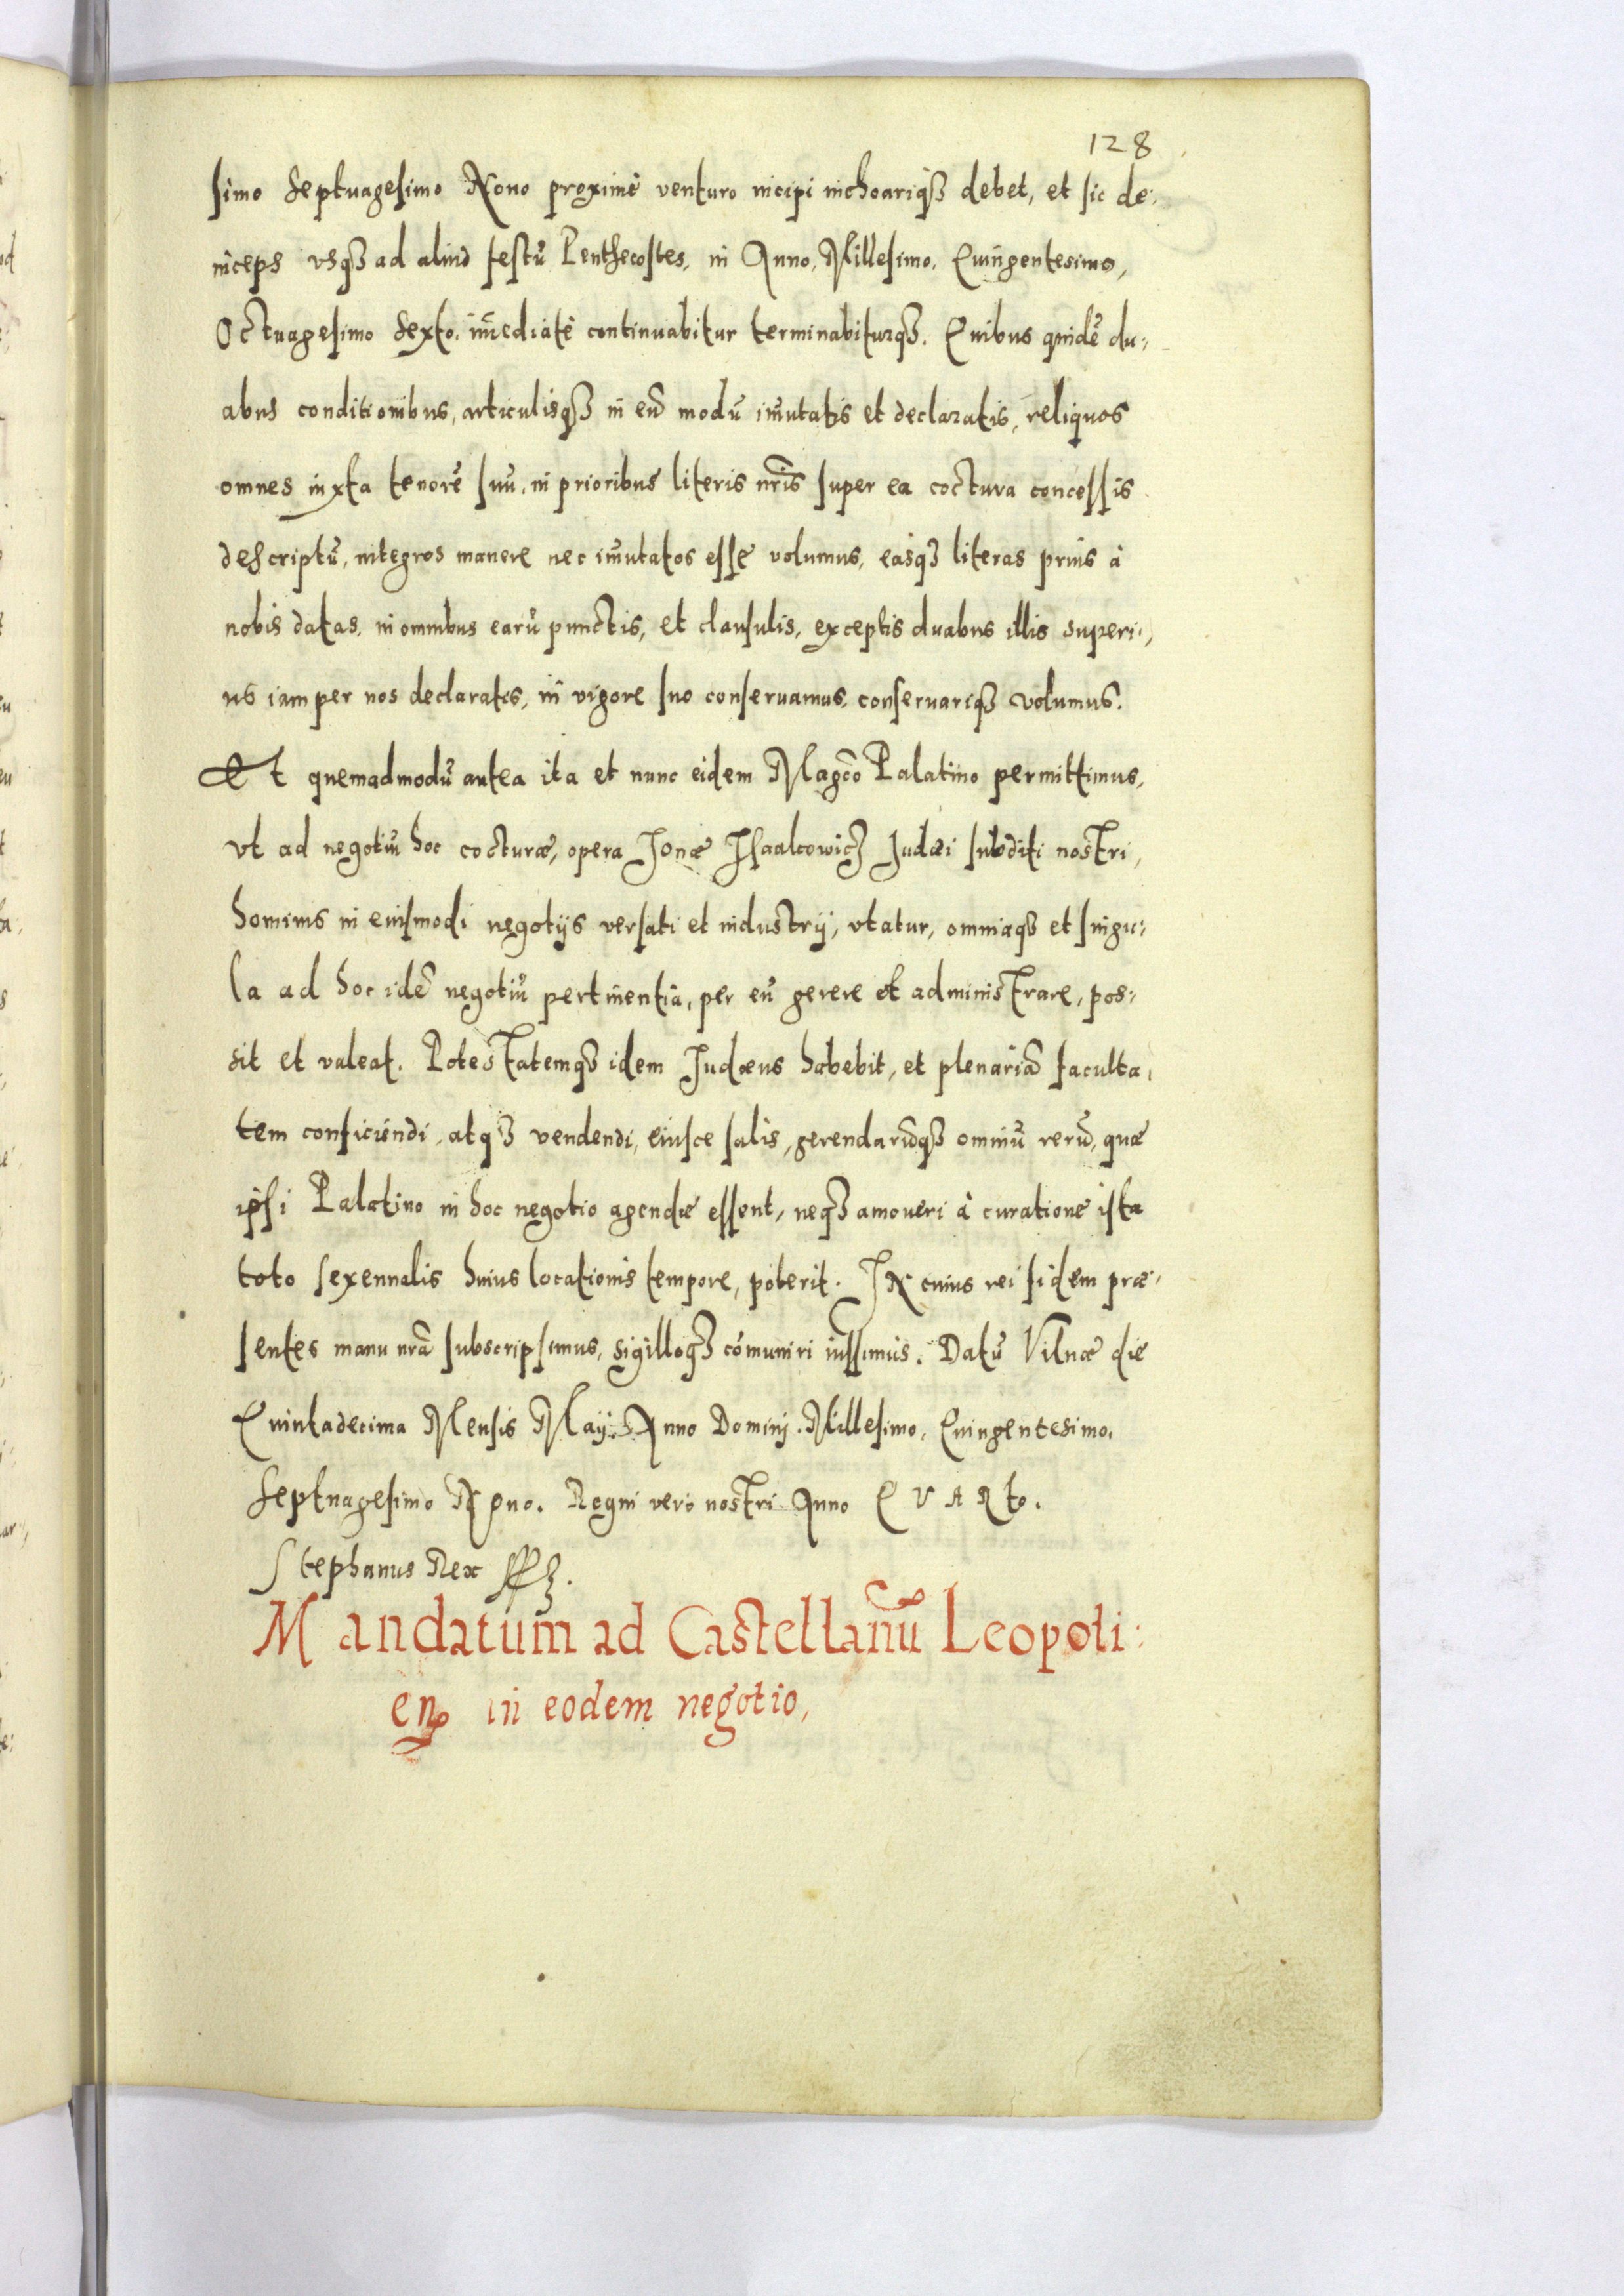 128
simo septuagesimo Nono proximè venturo incipi inchoariqꝫ debet, et sic de:
inceps vsqꝫ ad aliud festũ Penthecostes, in Anno, Millesimo, Quingentesimo,
Octuagesimo sexto, im̃ediatè continuabitur terminabiturqꝫ. Quibus quidẽ du:
abus conditionibus, articulisqꝫ in eũ modũ im̃utatis et declaratis, reliquos
omnes iuxta tenorẽ suũ, in prioribus literis nr̃is super ea coctura concessis
descriptũ, integros manere nec im̃utatos esse volumus, easqꝫ literas prius à
nobis datas, in omnibus earũ punctis, et clausulis, exceptis duabus illis superi:
us iam per nos declaratis, in vigore suo conseruamus, conseruariqꝫ volumus.
Et quemadmodũ antea ita et nunc eidem Magco Palatino permittimus,
vt ad negotiũ hoc cocturæ, opera Jonæ Isaakowicz Judæi subditi nostri,
hominis in eiusmodi negotijs versati et industrij, vtatur, omniaqꝫ et singu:
la ad hoc idẽ negotiũ pertinentia, per eũ gerere et administrare, pos:
sit et valeat. Potestatemqꝫ idem Judæus habebit, et plenariã faculta,
tem conficiendi, atqꝫ vendendi, eiusce salis, gerendarũqꝫ omniũ rerũ, quæ
ipsi Palatino in hoc negotio agendæ essent, neqꝫ amoueri à curatione ista
toto sexennalis huius locationis tempore, poterit. IN cuius rei fidem præ:
sentes manu nr̃a subscripsimus, sigilloqꝫ cõmuniri iussimus. Datũ Vilnæ die
Quintadecima Mensis Maij Anno Dominj. Millesimo, Quingentesimo,
Septuagesimo Nono. Regni vero nostri Anno QVARto.
Stephanus Rex
Mandatum ad Castellanũ Leopoli:
en̄ in eodem negotio,